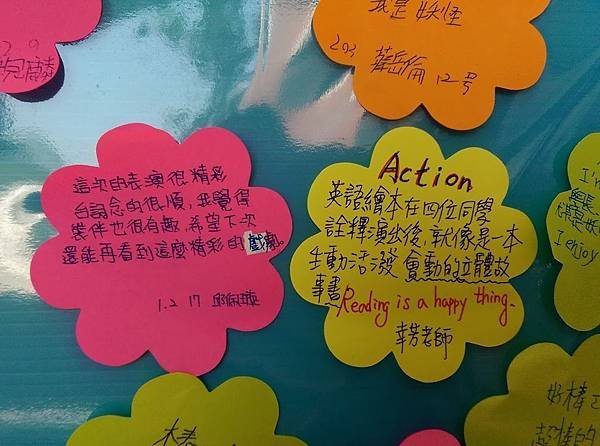 我是妖怪
202
12号
這次的表演很精彩
台詞念的很順,我覺得
裝件也很有趣,希望下次
還能再看到這麼精彩的戲劇。
1.2 17
Action
英語繪本在四位同學
詮釋演出後,就像是一本
生動活潑會動的立體故
事書 Reading is a happy thing.
幸芳老師
I'm
I enjoy
好棒
超棒的